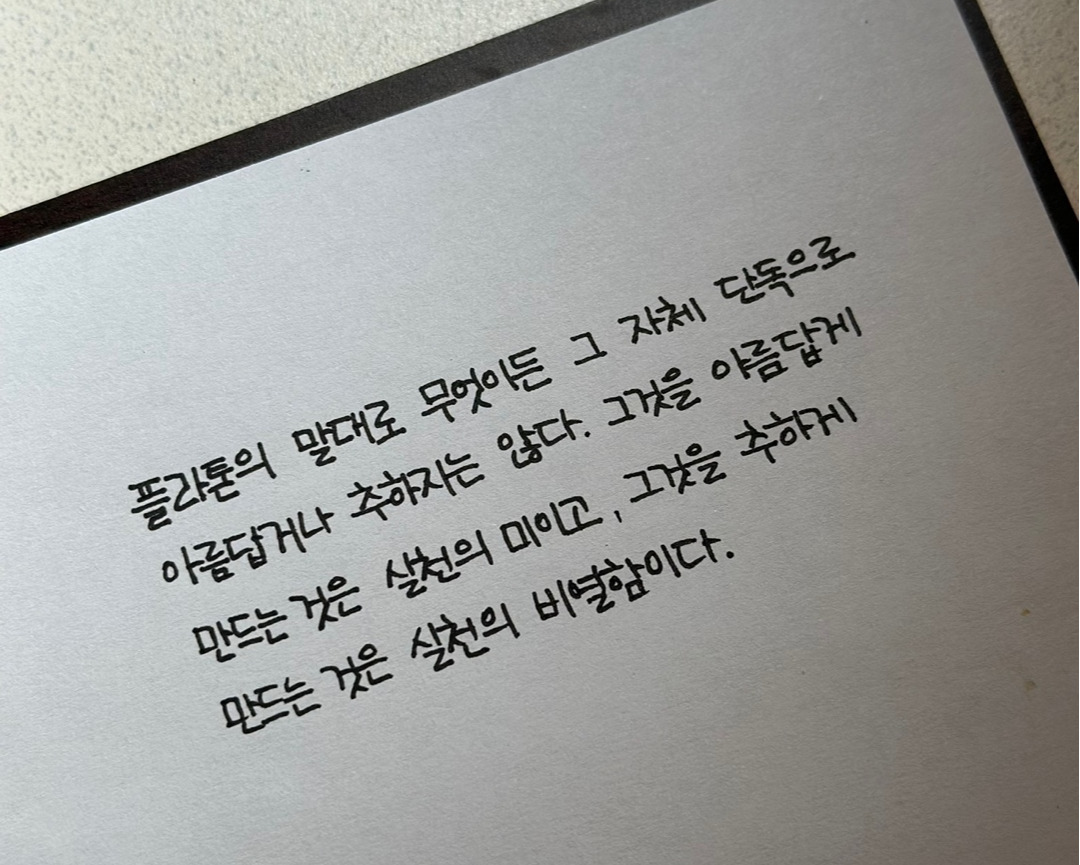 플라톤의 말대로 무엇이든 그 자체 단독으로
아름답거나 추하지는 않다. 그것을 아름답게
만드는 것은 실천의 미이고, 그것을 추하게
만드는 것은 실천의 비열함이다.